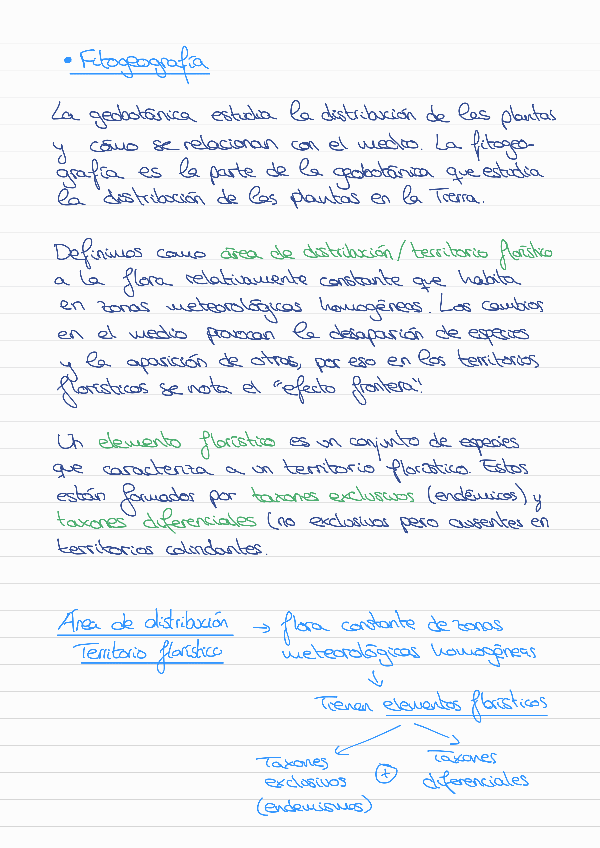 • Fitogeografía
La geobotánica estudia la distribución de las plantas
y cómo se relacionan con el medio. La fitogeo-
grafía es la parte de la geobotánica que estudia
la distribución de las plantas en la Tierra.
Definimos como área de distribución/territorio florístico
a la flora relativamente constante que habita
en zonas meteorológicas homogéneas. Los cambios
en el medio provocan la desaparición de especies
y la aparición de otras, por eso en los territorios
florísticos se nota el "efecto frontera".
Un elemento florístico es un conjunto de especies
que caracteriza a un territorio florístico. Estos
están formados por taxones exclusivos (endémicos) y
taxones diferenciales (no exclusivos pero ausentes en
territorios colindantes.
Área de distribución → flora constante de zonas
Territorio florístico meteorológicas homogéneas
↓
Tienen elementos florísticos
Taxones Taxones
exclusivos + diferenciales
(endemismos)